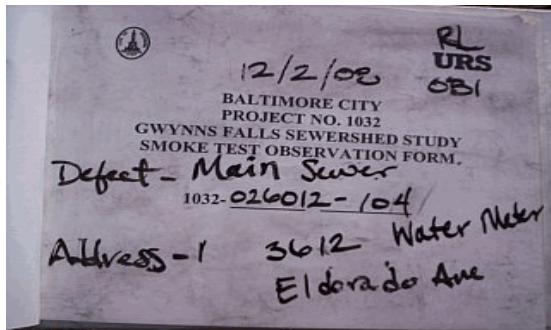 RL
URS
12/2/08
OBI
BALTIMORE CITY
PROJECT NO. 1032
GWYNNS FALLS SEWERSHED STUDY
SMOKE TEST OBSERVATION FORM.
Defect - Main Sewer
1032-026012-104
Address - 1 3612 Water Meter
Eldorado Ave